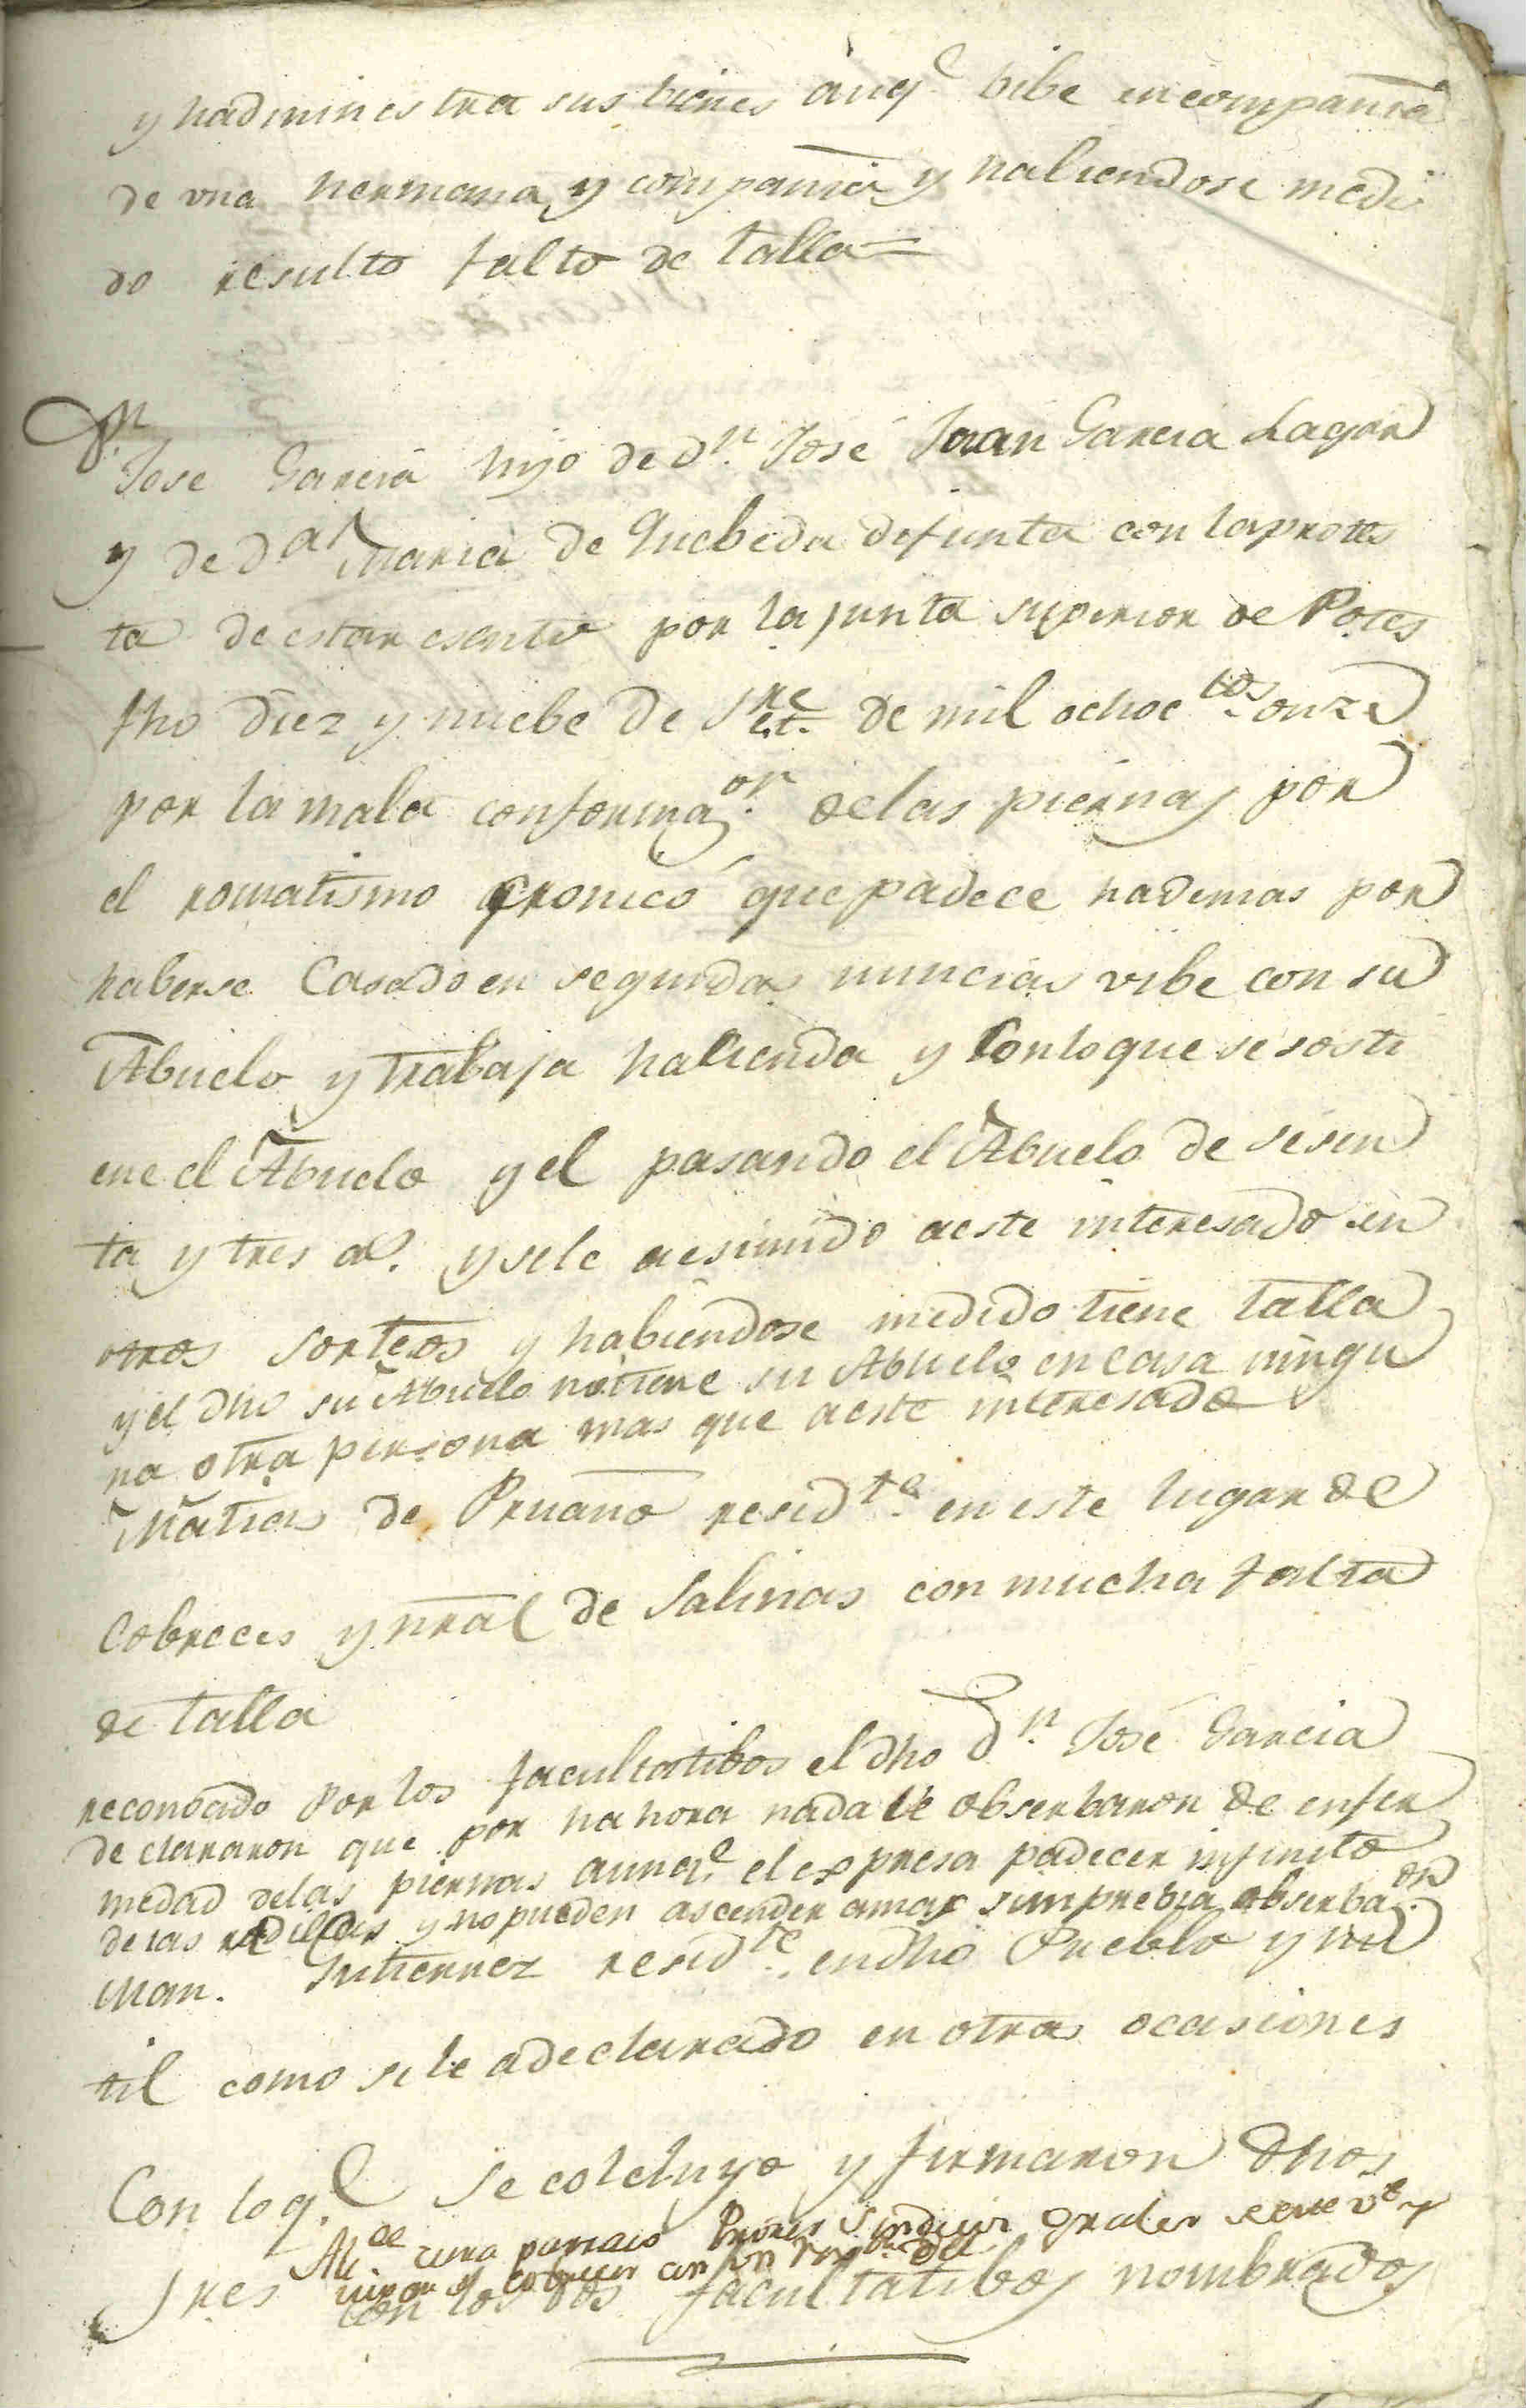 y hadminestra sus bienes aunq.e bibe en compania
de una hermana y compania y habiendose medi
do resulto falto de talla =
Dn
Jose Garcia hijo de dn. José Juan Garcia Lagar
y de da Maria de Quebeda difunta con la protes
ta de estar esento por la junta superior de Potes
fho diez y nuebe de Sre de mil ochoctos onze
por la mala conformaon. de las piernas por
el romatismo cronico que padece hademas por
haberse Casado en segundas nuncias vibe con su
Abuelo y trabaja halienda y Con lo que se sosti
ene el Abuelo y el pasando el Abuelo de sesen
ta y tres as. y se le aesimido a este interesado en
otros sorteos y habiendose medido tiene talla
y el dho su Abuelo no tiene su Abuelo en Casa ningu
na otra persona mas que a este interesado
Matias de Pruano residte. en este lugar de
Cobreces y nral de Salinas con mucha falta
de talla
reconoado Por los facultatibos el dho Dn. José Garcia
declararon que por hahora nada le obserbaron de enfer
medad de las piernas aunq.e el espresa padecer infinito
de las rodillas y no pueden ascender a mas sin prebia obserbaon.
Man. Gutierrez residte. en dho Pueblo y inu
til como se le a declarado en otras ocasiones
Con loq.e se colcluyo y firmaron dhos
Sres Alde cura parraco Sindicos Grales de este
con los dos facultatibos nombrados